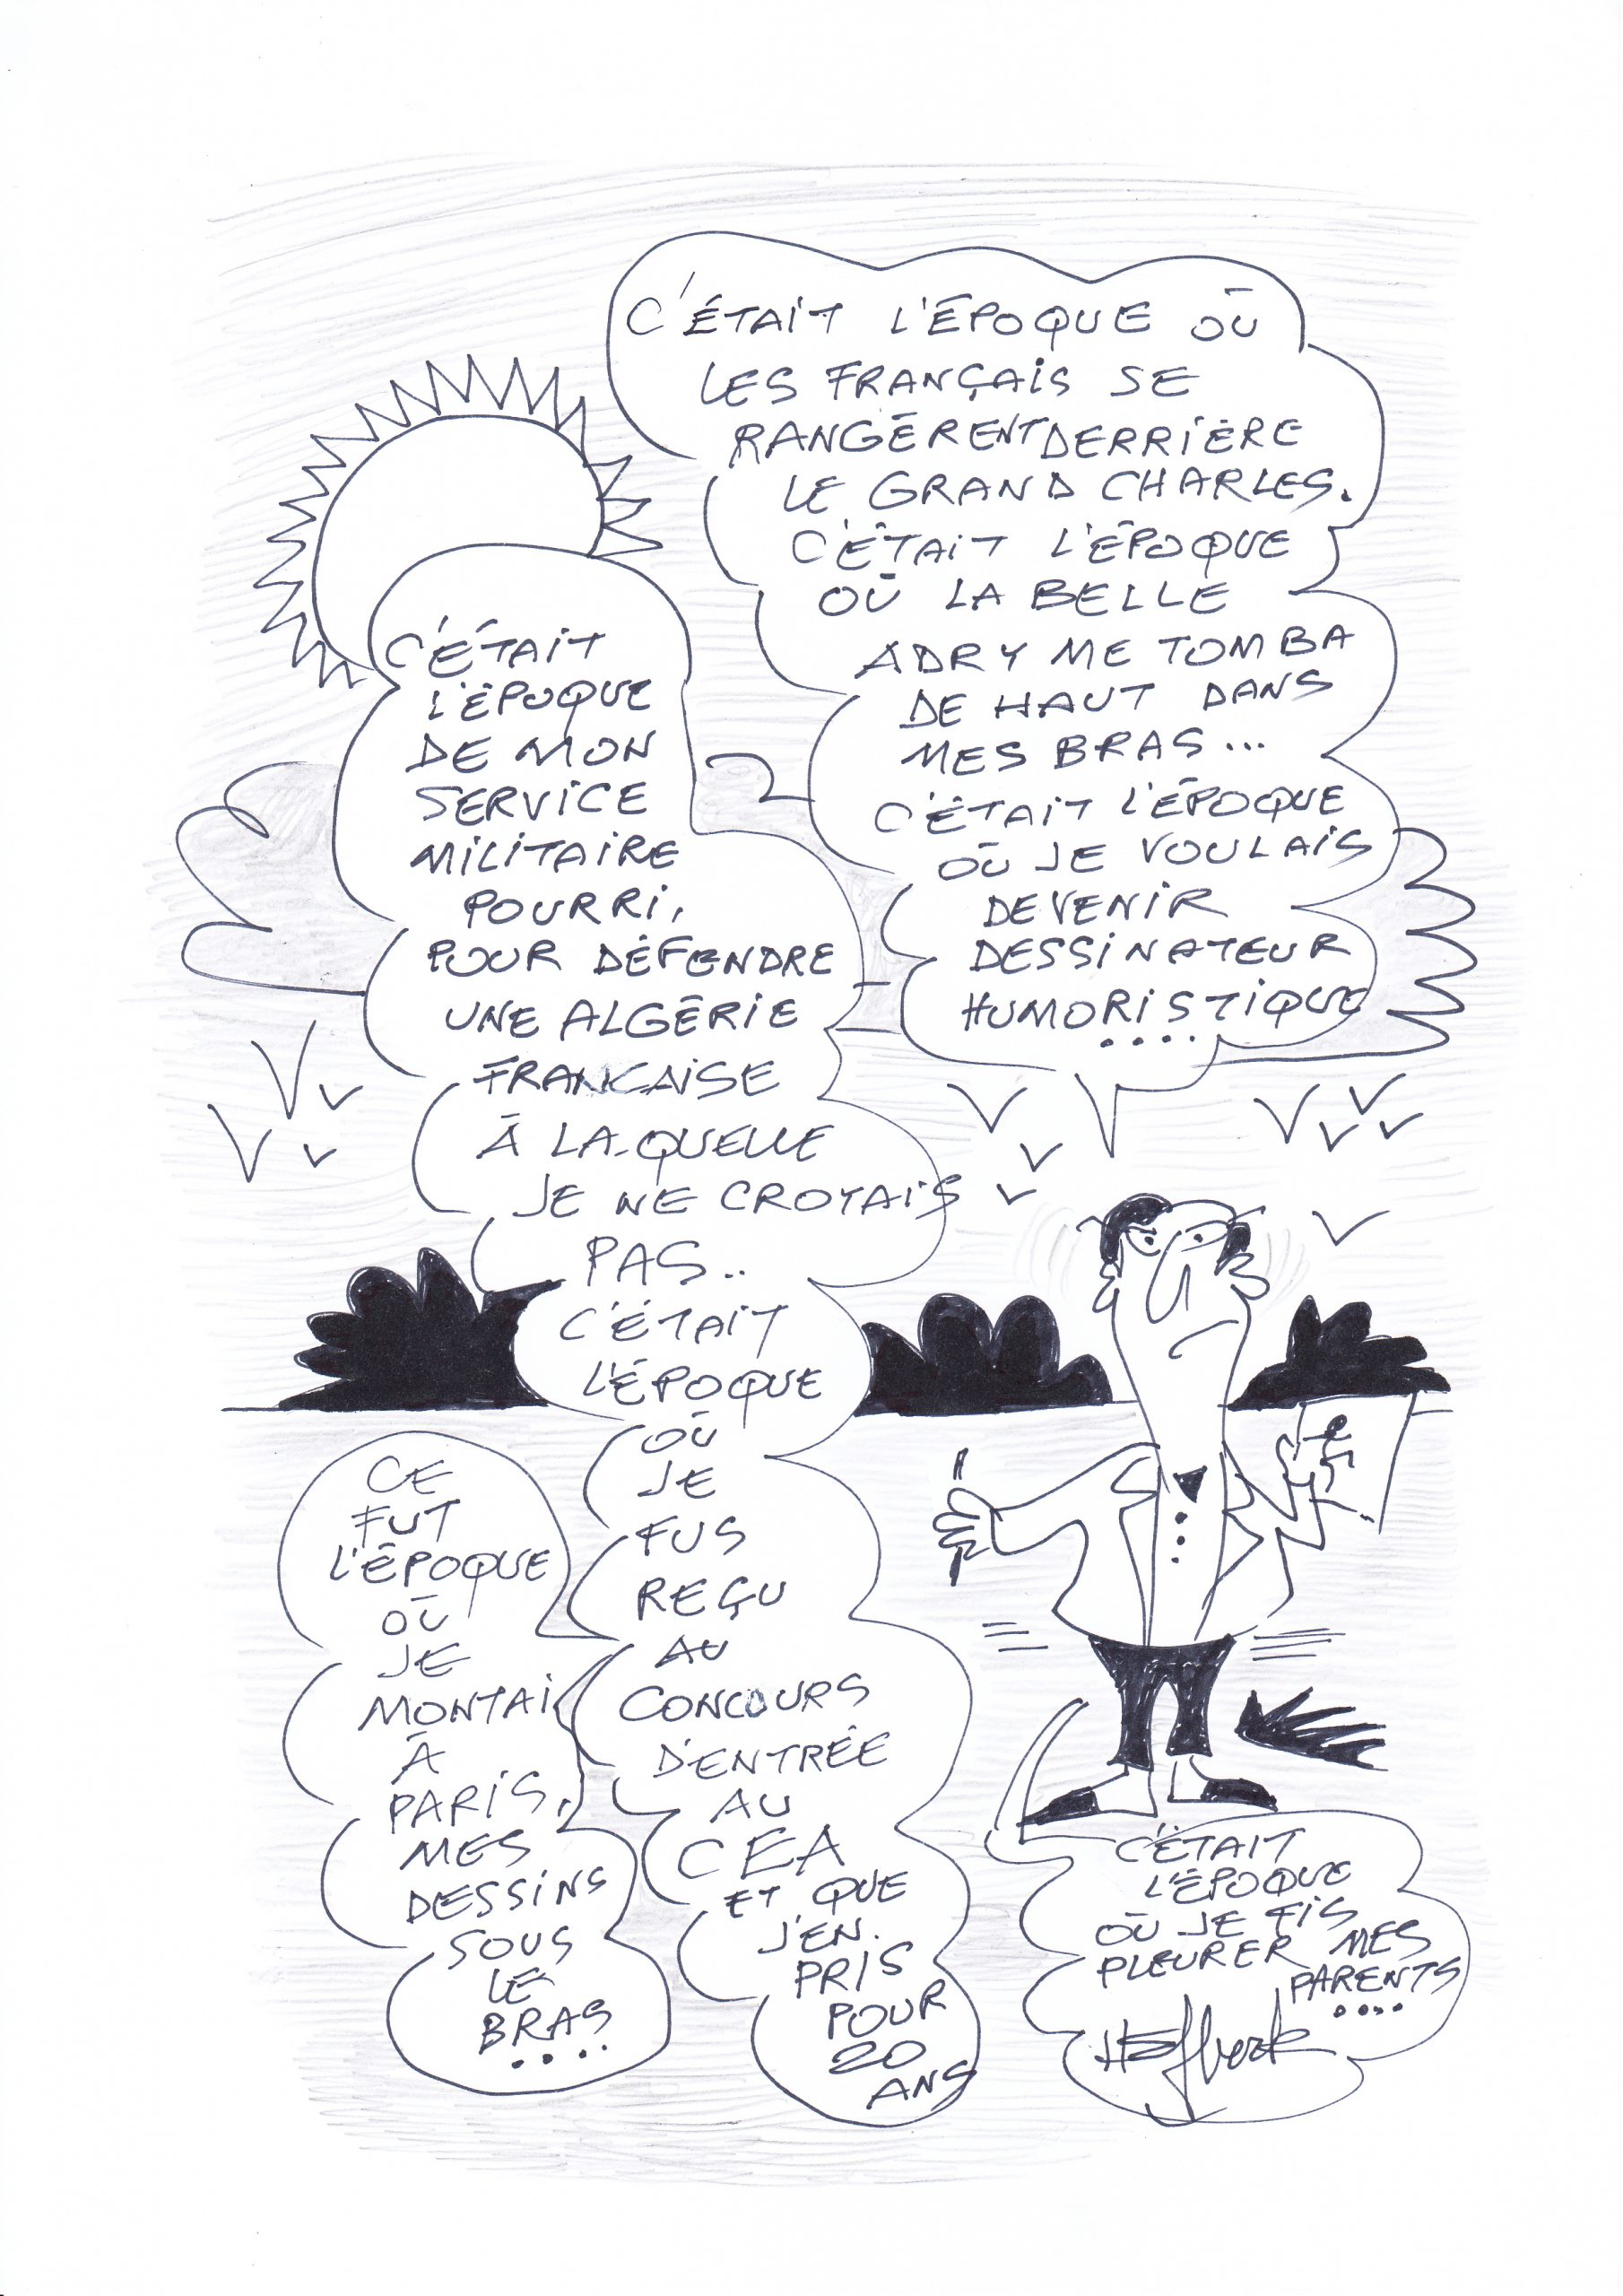 C'ÉTAIT L'ÉPOQUE OÙ
LES FRANÇAIS SE
RANGÈRENT DERRIÈRE
LE GRAND CHARLES.
C'ÉTAIT L'ÉPOQUE
OÙ LA BELLE
ADRY ME TOMBA
DE HAUT DANS
MES BRAS...
C'ÉTAIT L'ÉPOQUE
OÙ JE VOULAIS
DEVENIR
DESSINATEUR
HUMORISTIQUE
....
C'ÉTAIT
L'ÉPOQUE
DE MON
SERVICE
MILITAIRE
POURRI,
POUR DÉFENDRE
UNE ALGÉRIE
FRANCAISE
À LA-QUELLE
JE NE CROYAIS
PAS..
C'ÉTAIT
L'ÉPOQUE
OÙ
JE
FUS
REÇU
AU
CONCOURS
D'ENTRÉE
AU
CEA
ET QUE
J'EN.
PRIS
POUR
20
ANS
CE
FUT
L'ÉPOQUE
OÙ
JE
MONTAI
À
PARIS,
MES
DESSINS
SOUS
LE
BRAS
....
C'ÉTAIT
L'ÉPOQUE
OÙ JE FIS
PLEURER MES
PARENTS
....